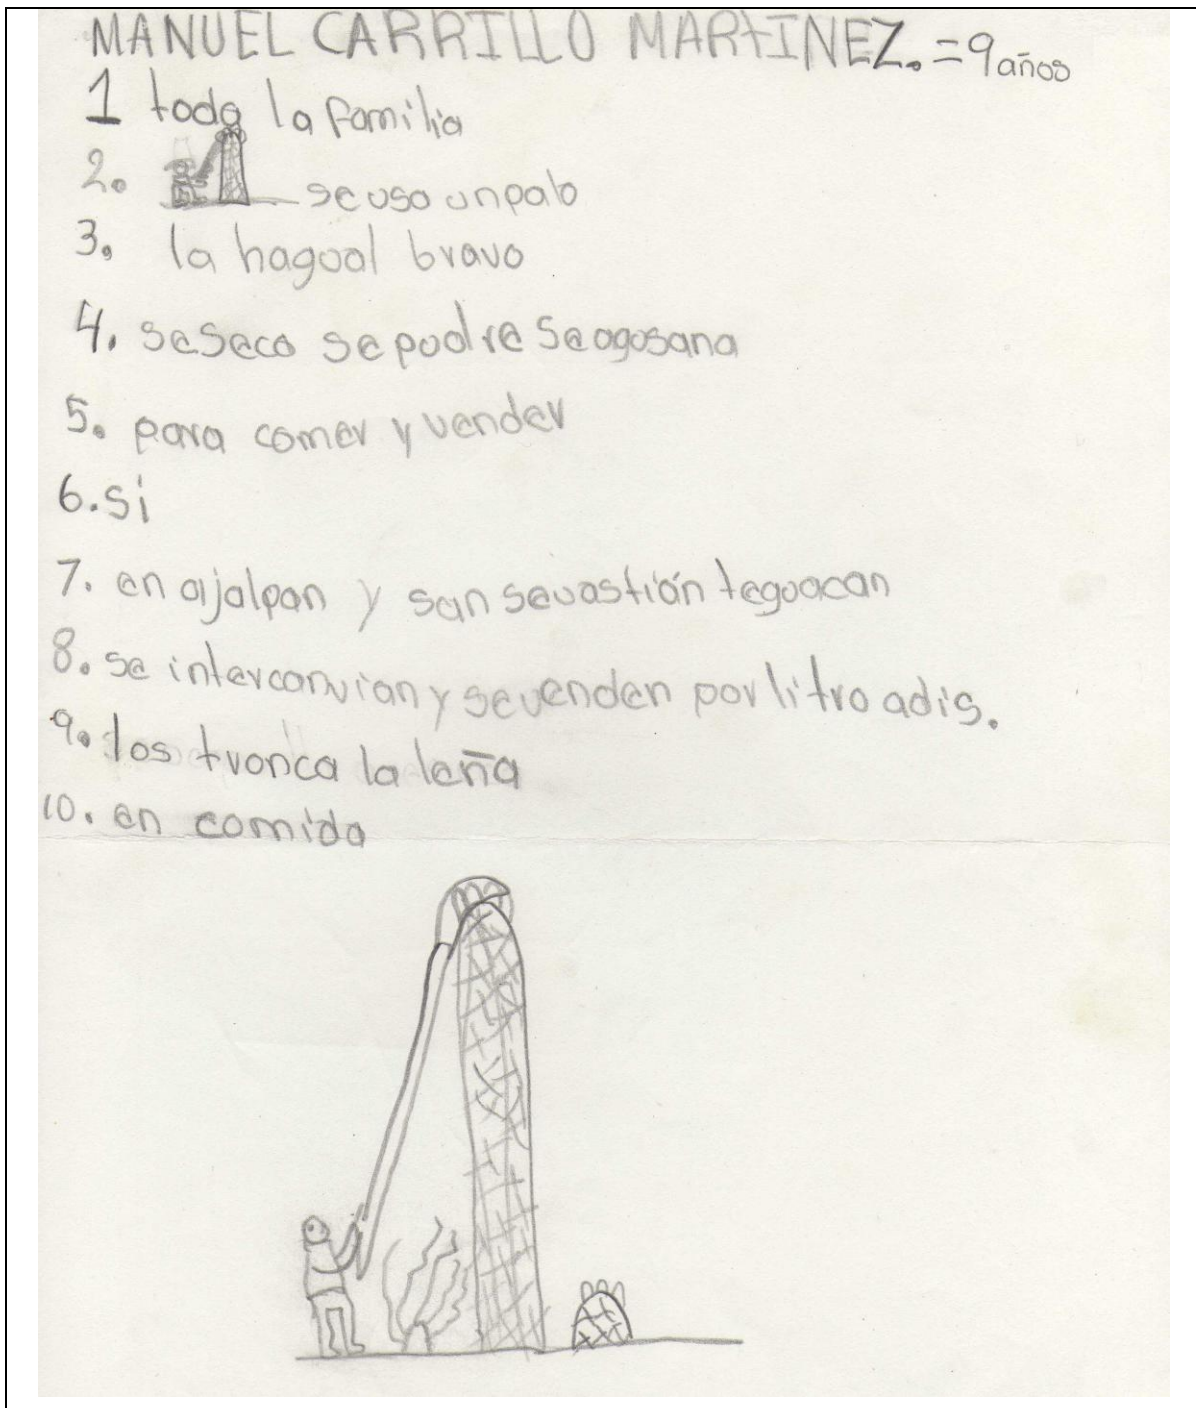 MANUEL CARRILLO MARTINEZ. = 9 años
1 toda la familia
2. se uso un palo
3. la hagual bravo
4. se seco se pudre se agosana
5. para comer y vender
6. si
7. en ajalpan y san sevastián teguacan
8. se intercanvian y se venden por litro adis.
9. los tronca la leña
10. en comida